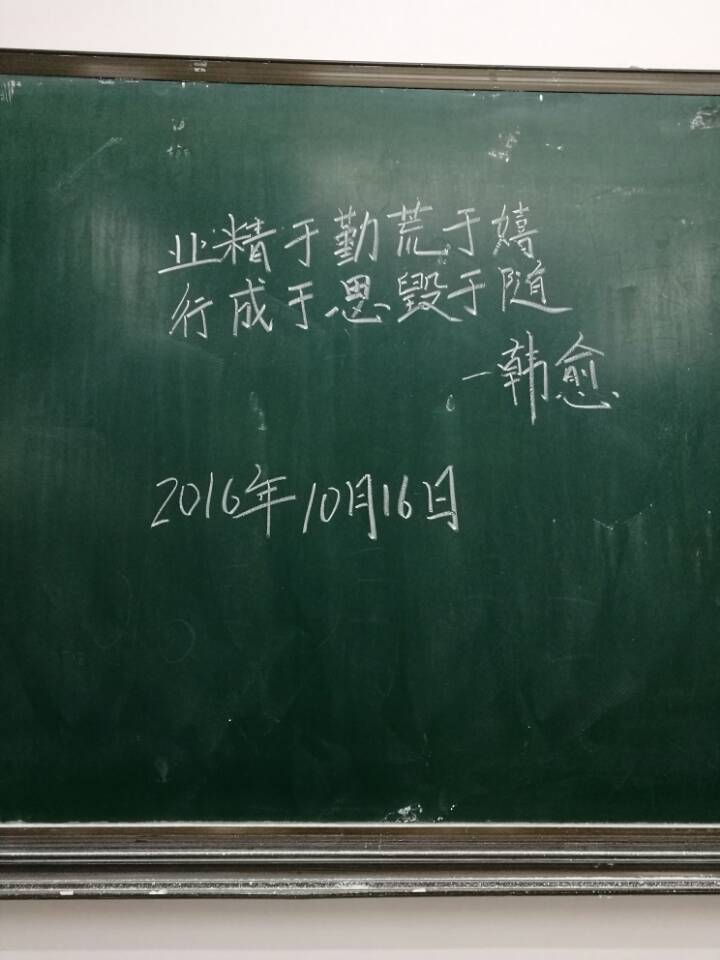 业精于勤荒于嬉
行成于思毁于随
-韩愈
2016年10月16日